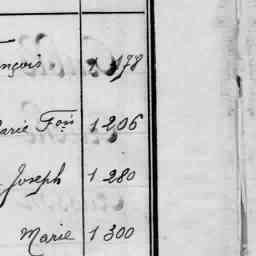 nçois 1 178
arie Fçs 1 206
Joseph 1 280
Marie 1 300